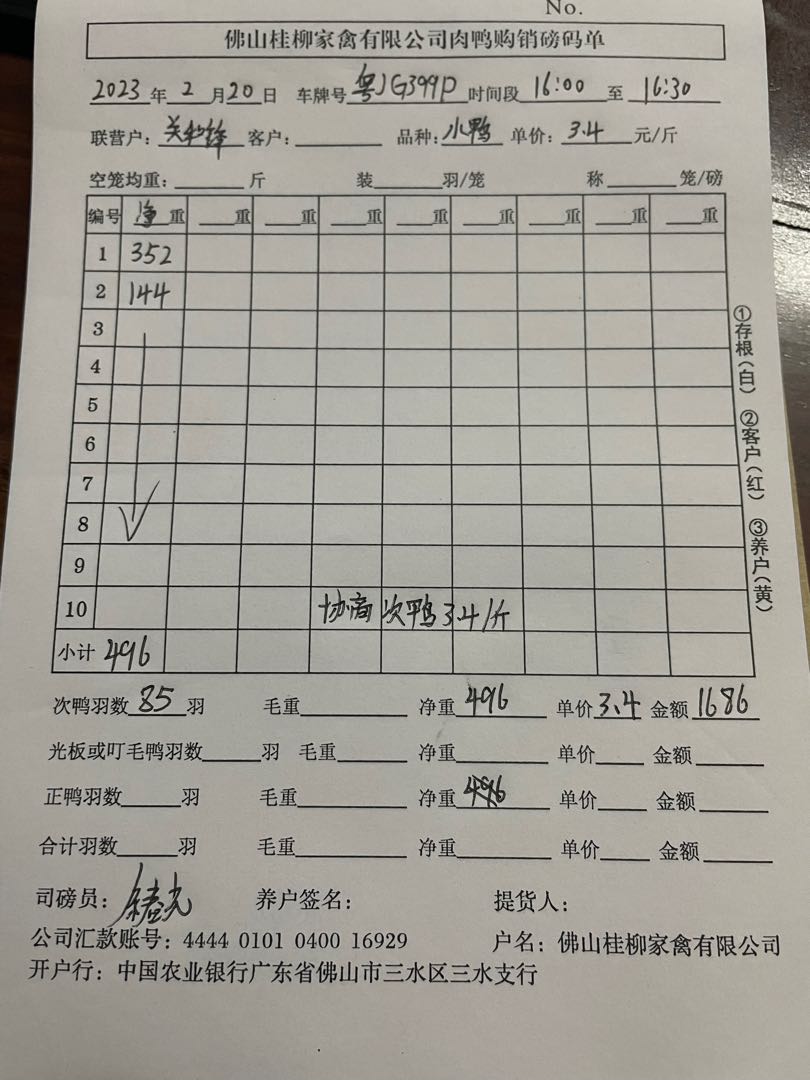 No.
佛山桂柳家禽有限公司肉鸭购销磅码单
2023年2月20日 车牌号粤JG399P时间段16:00至16:30
联营户: 客户: 品种:水鸭 单价:3.4元/斤
空笼均重: 斤 装 羽/笼 称 笼/磅
编号 净重 重 重 重 重 重 重 重 重
1 352
2 144
3
4
5
6
7
8
9
10 协商次鸭3.4/斤
小计 496
①存根(白) ②客户(红) ③养户(黄)
次鸭羽数85羽 毛重 净重496 单价3.4 金额1686
光板或叮毛鸭羽数 羽 毛重 净重 单价 金额
正鸭羽数 羽 毛重 净重 单价 金额
合计羽数 羽 毛重 净重 单价 金额
司磅员: 养户签名: 提货人:
公司汇款账号:4444 0101 0400 16929 户名:佛山桂柳家禽有限公司
开户行:中国农业银行广东省佛山市三水区三水支行